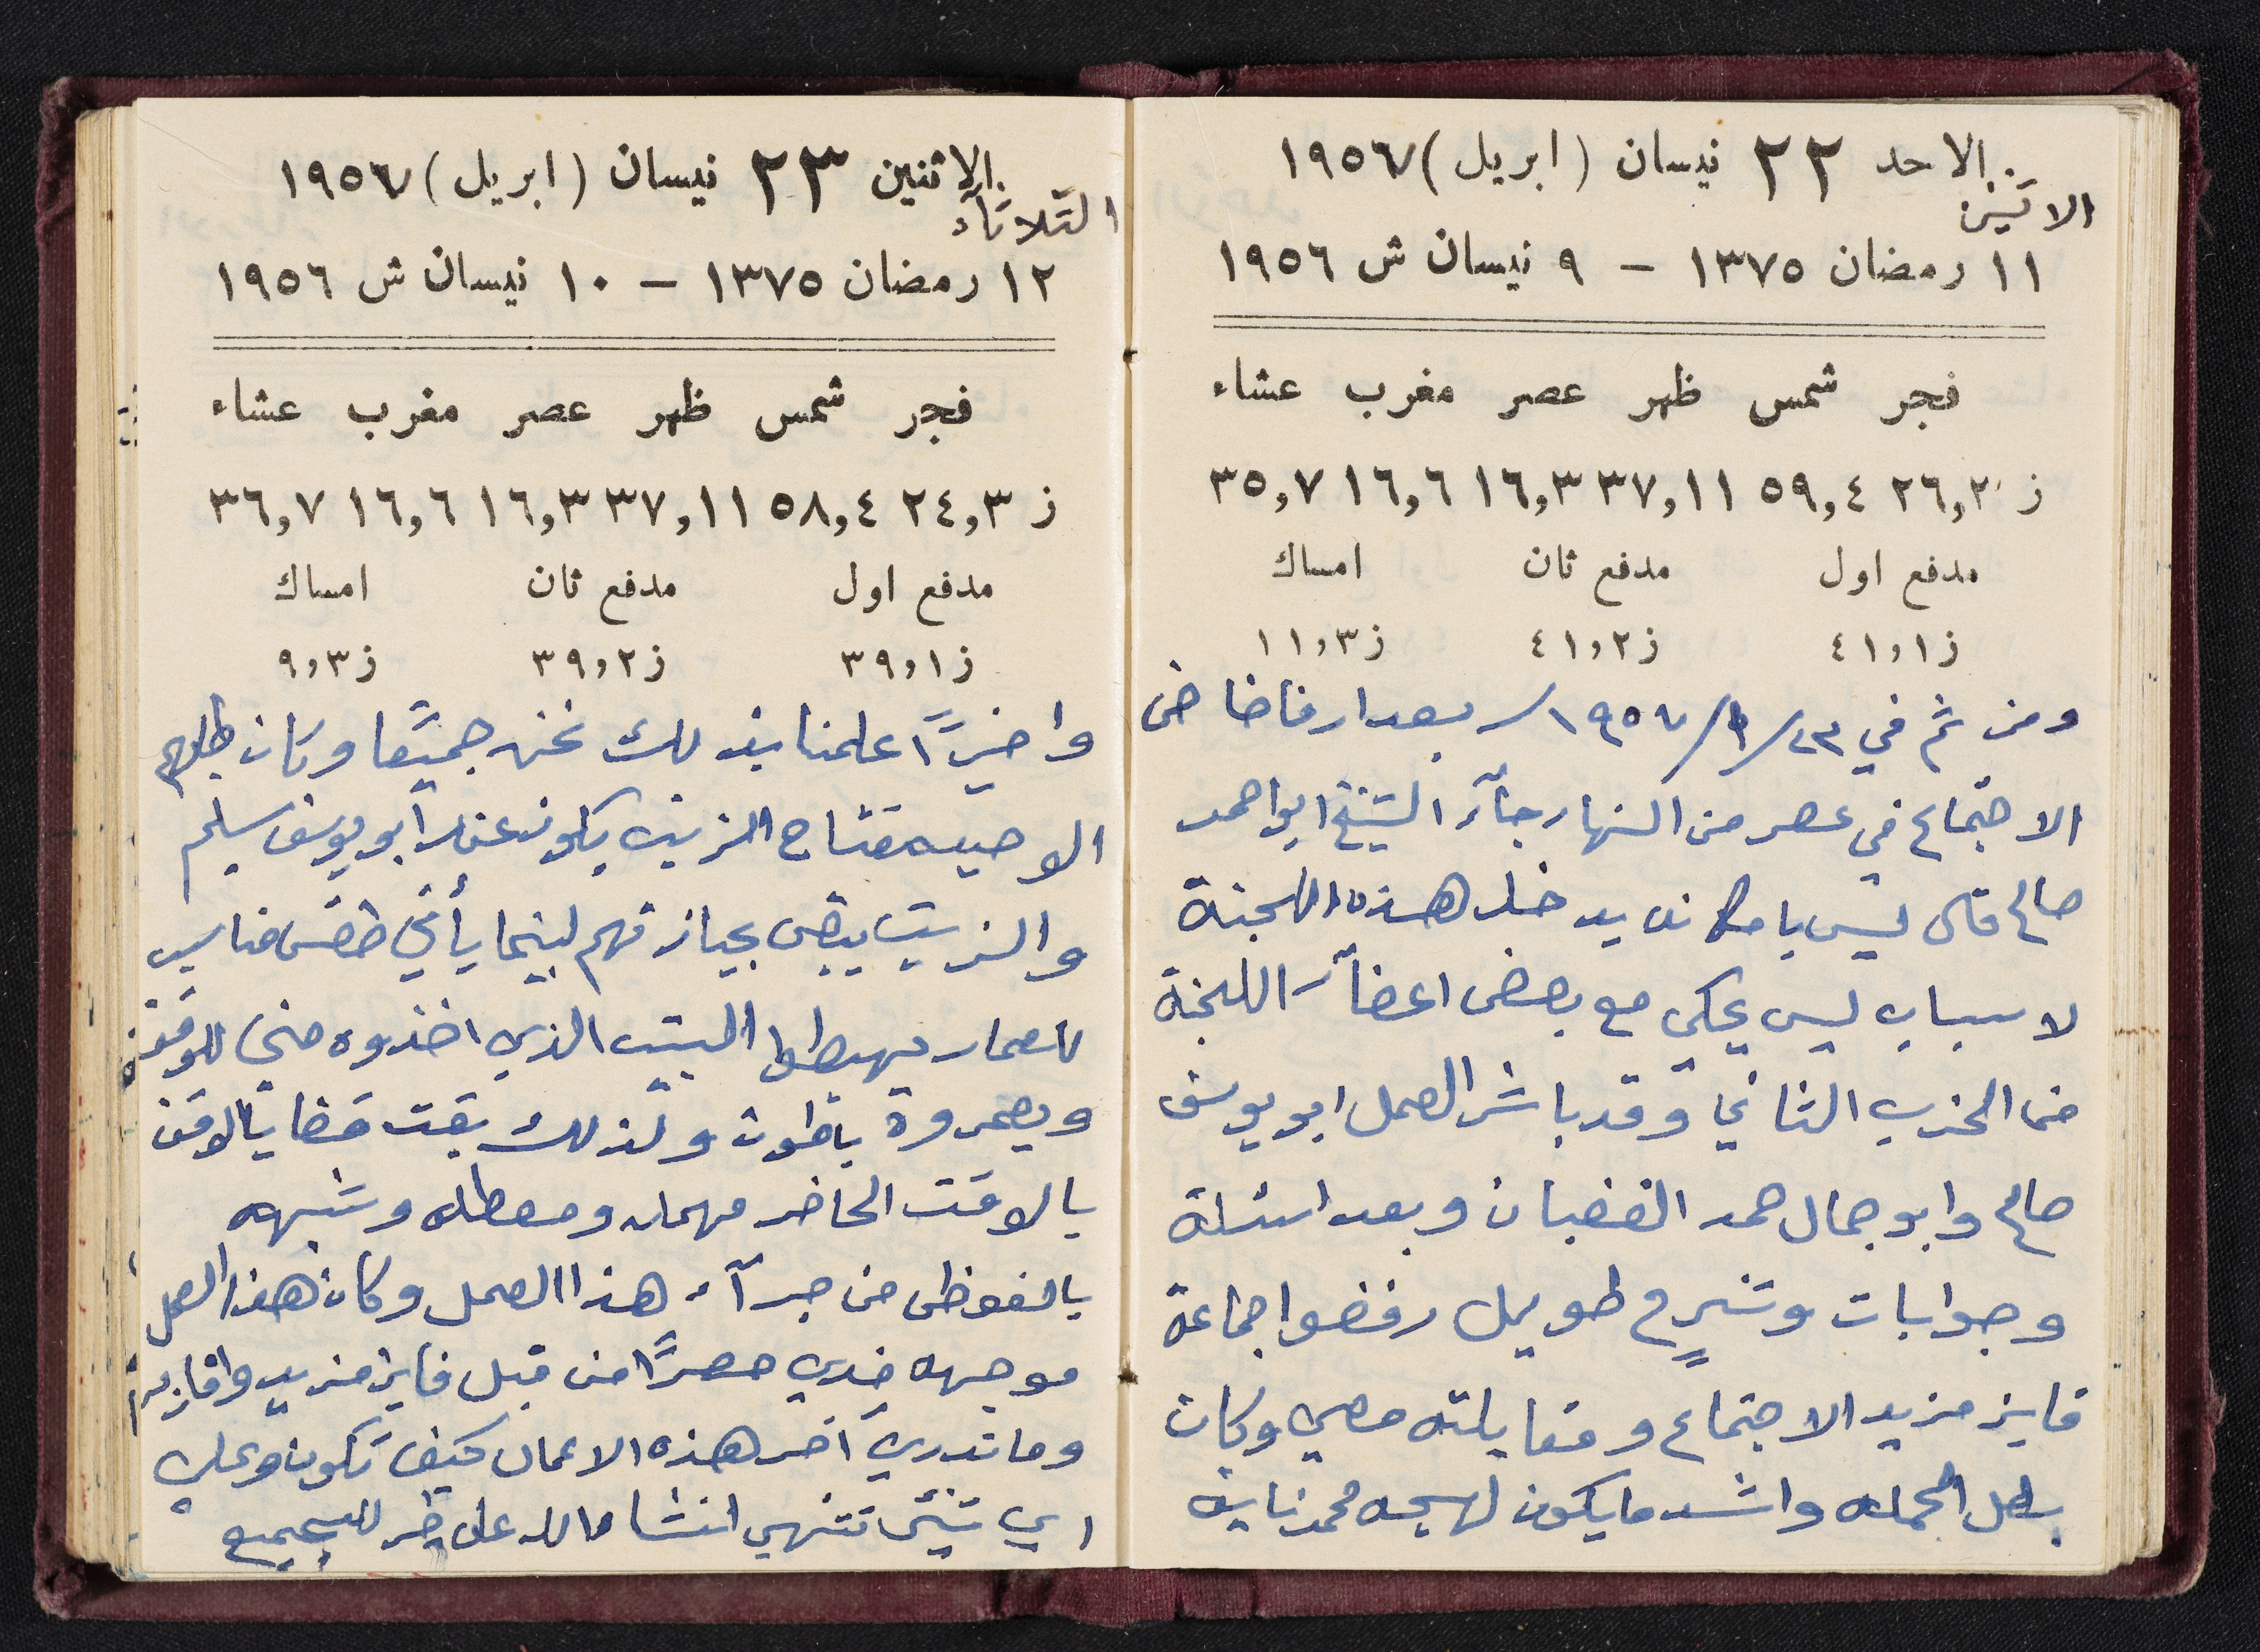 الاحد ٢٢ نيسان (ابريل) ١٩٥٦٧
الاثنين
١١ رمضان ١٣٧٥ - ٩ نيسان ش ١٩٥٦
فجر شمس ظهر عصر مغرب عشاء
ز ٢٦,٣ ٥٩,٤ ٣٧,١١ ١٦,٣ ١٦,٦ ٣٥,٧
مدفع اول مدفع ثان امساك
ز ٤١,١ ز ٤١,٢ ز ١١,٣
ومن ثم في ٢٣/ ١٩٥٧/ بعد ارفاضاض
الاجتماع في عصر من النهار جآء الشيخ ابو احمد
صالح قال ليس بامكانه يدخل هذه اللجنة
لاسباب ليس يحكي مع بعض اعضآء اللجنة
من الحزب الثاني وقد باشر العمل ابو يوسف
صالح وابو جمال حمد الغضبان وبعد اسئلة
وجوابات وشرح طويل رفضوا جماعة
فايز مزيد الاجتماع ومقابلته معي وكان
بطل الحملة واشد ما يكون لهجه محمد نايف
الاثنين ٢٣ نيسان (ابريل) ١٩٥٦٧
الثلاثآء
١٢ رمضان ١٣٧٥ - ١٠ نيسان ش ١٩٥٦
فجر شمس ظهر عصر مغرب عشاء
ز ٢٤,٣ ٥٨,٤ ٣٧,١١ ١٦,٣ ١٦,٦ ٣٦,٧
مدفع اول مدفع ثان امساك
ز ٣٩,١ ز ٣٩,٢ ز ٩,٣
واخيرًا علمنا بذلك نحن جميعًا وكان طلبهم
الوحيد مفتاح الزيت يكون عند ابو يوسف سليم
والزيت يبقى بحيازتهم لبينما يأتي طقس مناسب
للعمار يهبطوا البيت الذي اخذوه مني للوقف
ويعمروه باطون ولذلك بقت قضايا الوقف
بالوقت الحاضر مهمله ومعطله وشبهه
بالفوظى من جرآء هذا العمل وكان هذا العمل
موجهه ضدي حصرًا من قبل فايز مزيد واقاربه
وما ندري آخر هذه الاعمال كيف تكون وعلى
اي شيئ تنتهي انشاء الله على خير للجميع